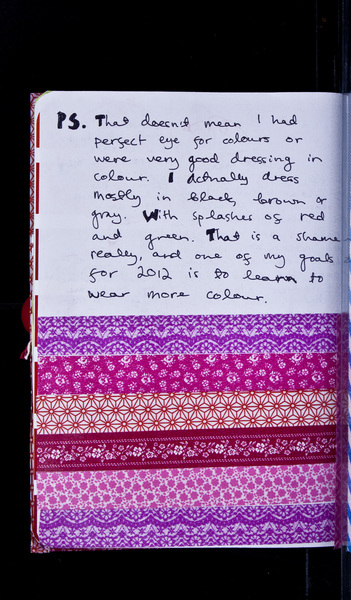 PS. That doesn't mean I had
perfect eye for colours or
were very good dressing in
colour. I actually dress
mostly in black, brown or
gray. With splashes of red
and green. That is a shame
really, and one of my goals
for 2012 is to learn to
wear more colour.